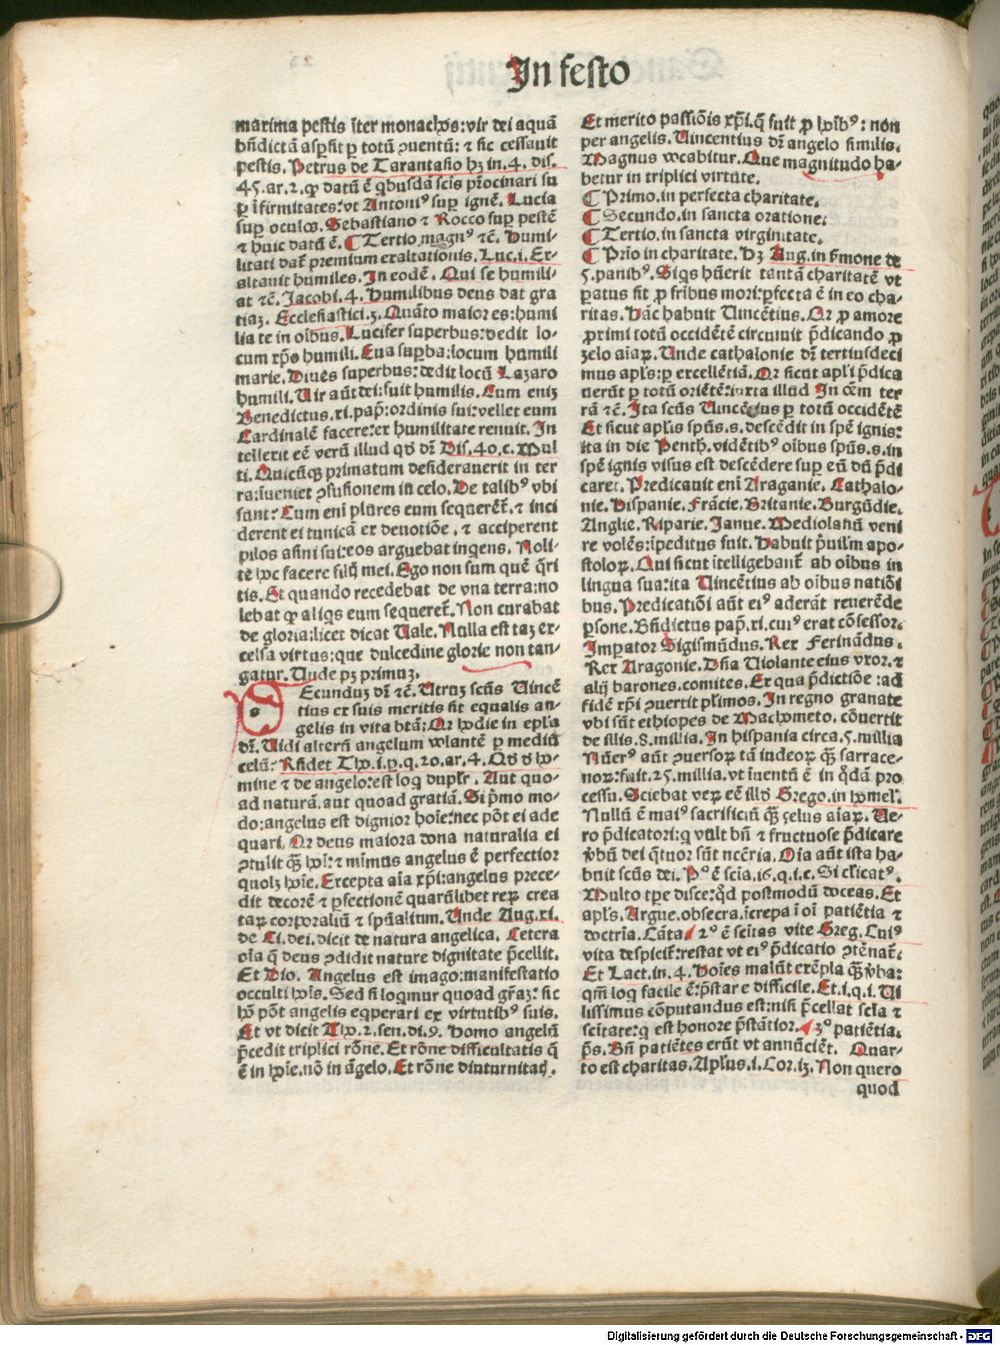 In festo
maxima pestis īter monachos: vir dei aquā
bn̄dictā asp̄sit p totū ꝯuentū: ⁊ sic cessauit
pestis. Petrus de Tarantasio hꝫ in. 4. dis.
45. ar. 2. ꝙ datū ē qbusdā scīs pr̄ocinari su
ꝑ īfirmitates: vt Antoniꝰ suꝑ ignē. Lucia
suꝑ oculos. Sebastiano ⁊ Rocco suꝑ pestē
⁊ huic datū ē. ¶ Tertio. magnꝰ ⁊c̄. Humi-
litati dat̄ premium exaltationis. Luc. i. Ex-
altauit humiles. In eodē. Qui se humili-
at ⁊c̄. Jacobi. 4. Humilibus deus dat gra
tiaꝫ. Ecclesiastici. 3. Quāto maior es: humi
lia te in oībus. Lucifer superbus: dedit lo-
cum xp̄o humili. Eua suꝑba: locum humili
marie. Diues superbus: dedit locū Lazaro
humili. Vir aūt dei: fuit humilis. Cum eniꝫ
Benedictus. xi. pap̄: ordinis sui: vellet eum
Cardinalē facere: ex humilitate renuit. In
tellexit eē verū illud qd̄ dr̄. Dis. 40. c. Mul
ti. Quicūqꝫ primatum desiderauerit in ter
ra: īueniet ꝯfusionem in celo. De talibꝰ vbi
sunt: Cum enī plures eum sequerēt̄. ⁊ inci
derent ei tunicā ex deuotiōe. ⁊ acciperent
pilos asini sui: eos arguebat ingens. Noli-
te hoc facere filij mei. Ego non sum quē q̄ri
tis. Et quando recedebat de vna terra: no
lebat ꝙ aliqs eum sequeret̄. Non curabat
de gloria: licet dicat Vale. Nulla est taꝫ ex-
celsa virtus: que dulcedine glorie non tan-
gatur. Unde pꝫ primuꝫ.
Secunduꝫ dr̄ ⁊c̄. Utruꝫ scūs Uincē
tius ex suis meritis sit equalis an-
gelis in vita btā: Qr hodie in epla
dr̄. Uidi alterū angelum volantē ꝑ mediū
celū: Rn̄det Tho. i. p. q. 20. ar. 4. Qd̄ d̄ ho-
mine ⁊ de angelo: est loq dupl̄r. Aut quo-
ad naturā. aut quoad gratiā. Si p̄mo mo-
do: angelus est dignior hoīe: nec pōt ei ade
quari. Qr deus maiora dona naturalia ei
ꝯtulit qꝫ̄ hoī: ⁊ mimus angelus ē perfectior
quolꝫ hoīe. Excepta aīa xp̄i: angelus prece-
dit decorē ⁊ ꝑfectionē quarūlibet reꝝ crea
taꝝ corporaliū ⁊ spūalium. Unde Aug. xi.
de Ci. dei. dicit de natura angelica. Cetera
oīa q̄ deus ꝯdidit nature dignitate p̄cellit.
Et Dio. Angelus est imago: manifestatio
occulti hoīs. Sed si loqmur quoad gr̄aꝫ: sic
hō pōt angelis eqperari ex virtutibꝰ suis.
Et vt dicit Tho. 2. sen. di. 9. Homo angelū
p̄cedit triplici rōne. Et rōne difficultatis q̄
ē in hoīe. nō in āgelo. Et rōne diuturnitatꝭ.
Et merito passiōis xp̄i. q̄ fuit ꝓ hoībꝰ: non
per angelis. Uincentius dr̄ angelo similis.
Magnus vocabitur. Que magnitudo ha-
betur in triplici virtute.
¶ Primo. in perfecta charitate.
¶ Secundo. in sancta oratione.
¶ Tertio. in sancta virginitate.
¶ Prīo in charitate. Hꝫ Aug. in ẜmone de
5. panibꝰ. Siqs hūerit tantā charitatē vt
ꝑatus sit ꝓ frībus mori: ꝑfecta ē in eo cha-
ritas. Hāc habuit Uincētius. Qr ꝓ amore
ꝓximi totū occidētē circuiuit p̄dicando ꝓ
zelo aīaꝝ. Unde cathalonie dr̄ tertiusdeci
mus apl̄s: ꝑ excellētiā. Qr sicut apl̄i p̄dica
uerūt ꝑ totū oriētē: iuxta illud In oēm ter
rā ⁊c̄. Ita scūs Uincētius ꝑ totū occidētē
Et sicut apl̄is spūs. s. descēdit in spē ignis:
ita in die Penth. vidētibꝰ oībus spūs. s. in
spē ignis visus est descēdere suꝑ eū dū p̄di
caret. Predicauit enī Araganie. Cathalo-
nie. Hispanie. Frācie. Britanie. Burgūdie.
Anglie. Riparie. Janue. Mediolanū veni
re volēs: īpeditus fuit. Habuit p̄uil'm apo-
stoloꝝ. Qui sicut ītelligebant̄ ab oībus in
lingua sua: ita Uincētius ab oībus natiōi
bus. Predicatiōi aūt eiꝰ aderāt reuerēde
ꝑsone. Bn̄dictus pap̄. xi. cuiꝰ erat cōfessor.
Imꝑator Sigismūdus. Rex Ferinādus.
Rex Aragonie. Dn̄a Uiolante eius vxor. ⁊
alij barones. comites. Ex qua p̄dictiōe: ad
fidē xp̄i ꝯuertit pl'imos. In regno granate
vbi sūt ethiopes de Machometo. cōuertit
de illis. 8. millia. In hispania circa. 5. millia
Nūerꝰ aūt ꝯuersoꝝ tā iudeoꝝ qꝫ̄ sarrace-
noꝝ: fuit. 25. millia. vt īuentū ē in q̄dā pro
cessu. Sciebat veꝝ eē illd̄ Grego. in homel'.
Nullū ē maiꝰ sacrificiū qꝫ̄ çelus aīaꝝ. Ve-
ro p̄dicatori: q vult bn̄ ⁊ fructuose p̄dicare
v̄bū dei q̄tuor sūt ncēria. Oīa aūt ista ha-
buit scūs dei. Pº ē scīa. 16. q. i. c. Si cl'icatꝰ.
Multo tp̄e disce: qd̄ postmodū doceas. Et
apl̄s. Argue. obsecra. īcrepa ī oī patiētia ⁊
doctrīa. Cāta 2º ē scītas vite Greg. Cuiꝰ
vita despicit̄: restat vt eiꝰ p̄dicatio ꝯtēnat̄.
Et Lact. in. 4. Hoīes malūt exēpla qꝫ̄ v̄ba:
qm̄ loq facile ē: p̄stare difficile. Et. i. q. i. Ui
lissimus cōputandus est: nisi p̄cellat scīa ⁊
scītate: q est honore p̄stātior. 3º patiētia.
ps̄. Bn̄ patiētes erūt vt annūciēt. Quar-
to est charitas. Apl̄us. i. Cor. 13. Non quero
quod
Digitalisierung gefördert durch die Deutsche Forschungsgemeinschaft - DFG